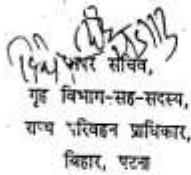 सचिव,
गृह विभाग-सह-सदस्य,
राज्य परिवहन प्राधिकार,
बिहार, पटना